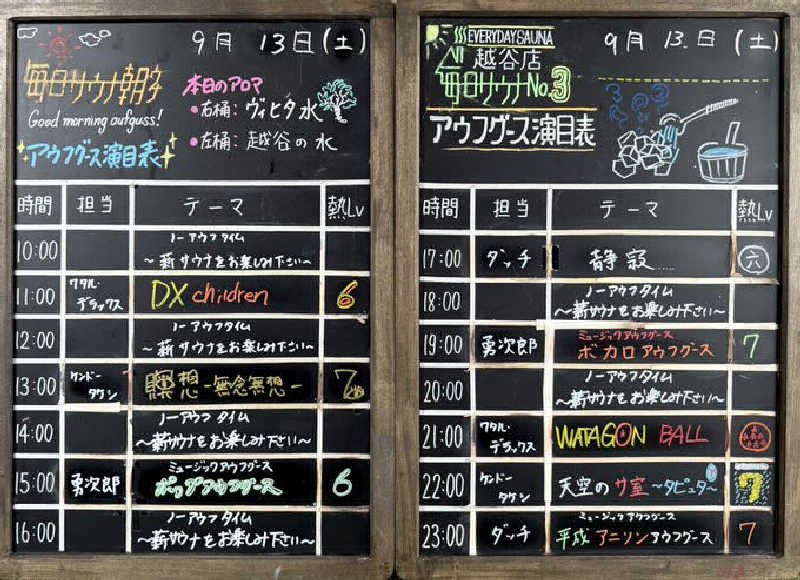 9月 13日(土)
毎日サウナ朝子
Good morning aufguss!
アウフグース演目表
本日のアロマ
・右桶: ヴィヒタ水
・左桶: 越谷の水
時間 担当 テーマ 熱Lv
10:00 ノーアウフタイム
〜薪サウナをお楽しみ下さい〜
11:00 ワタル・デラックス DX children 6
12:00 ノーアウフタイム
〜薪サウナをお楽しみ下さい〜
13:00 ケンドータケシ 瞑想 -無念無想- 7
14:00 ノーアウフタイム
〜薪サウナをお楽しみ下さい〜
15:00 勇次郎 ミュージックアウフグース
ポップアウフグース 6
16:00 ノーアウフタイム
〜薪サウナをお楽しみ下さい〜
EVERYDAY SAUNA
越谷店
9月 13.日 (土)
毎日サウナ No.3
アウフグース演目表
時間 担当 テーマ 熱Lv
17:00 ダッチ 静寂…… 六
18:00 ノーアウフタイム
〜薪サウナをお楽しみ下さい〜
19:00 勇次郎 ミュージックアウフグース
ボカロアウフグース 7
20:00 ノーアウフタイム
〜薪サウナをお楽しみ下さい〜
21:00 ワタル・デラックス WATAGON BALL
22:00 ケンドータケシ 天空のサ室 〜タピュタ〜 7
23:00 ダッチ ミュージックアウフグース
平成アニソンアウフグース 7